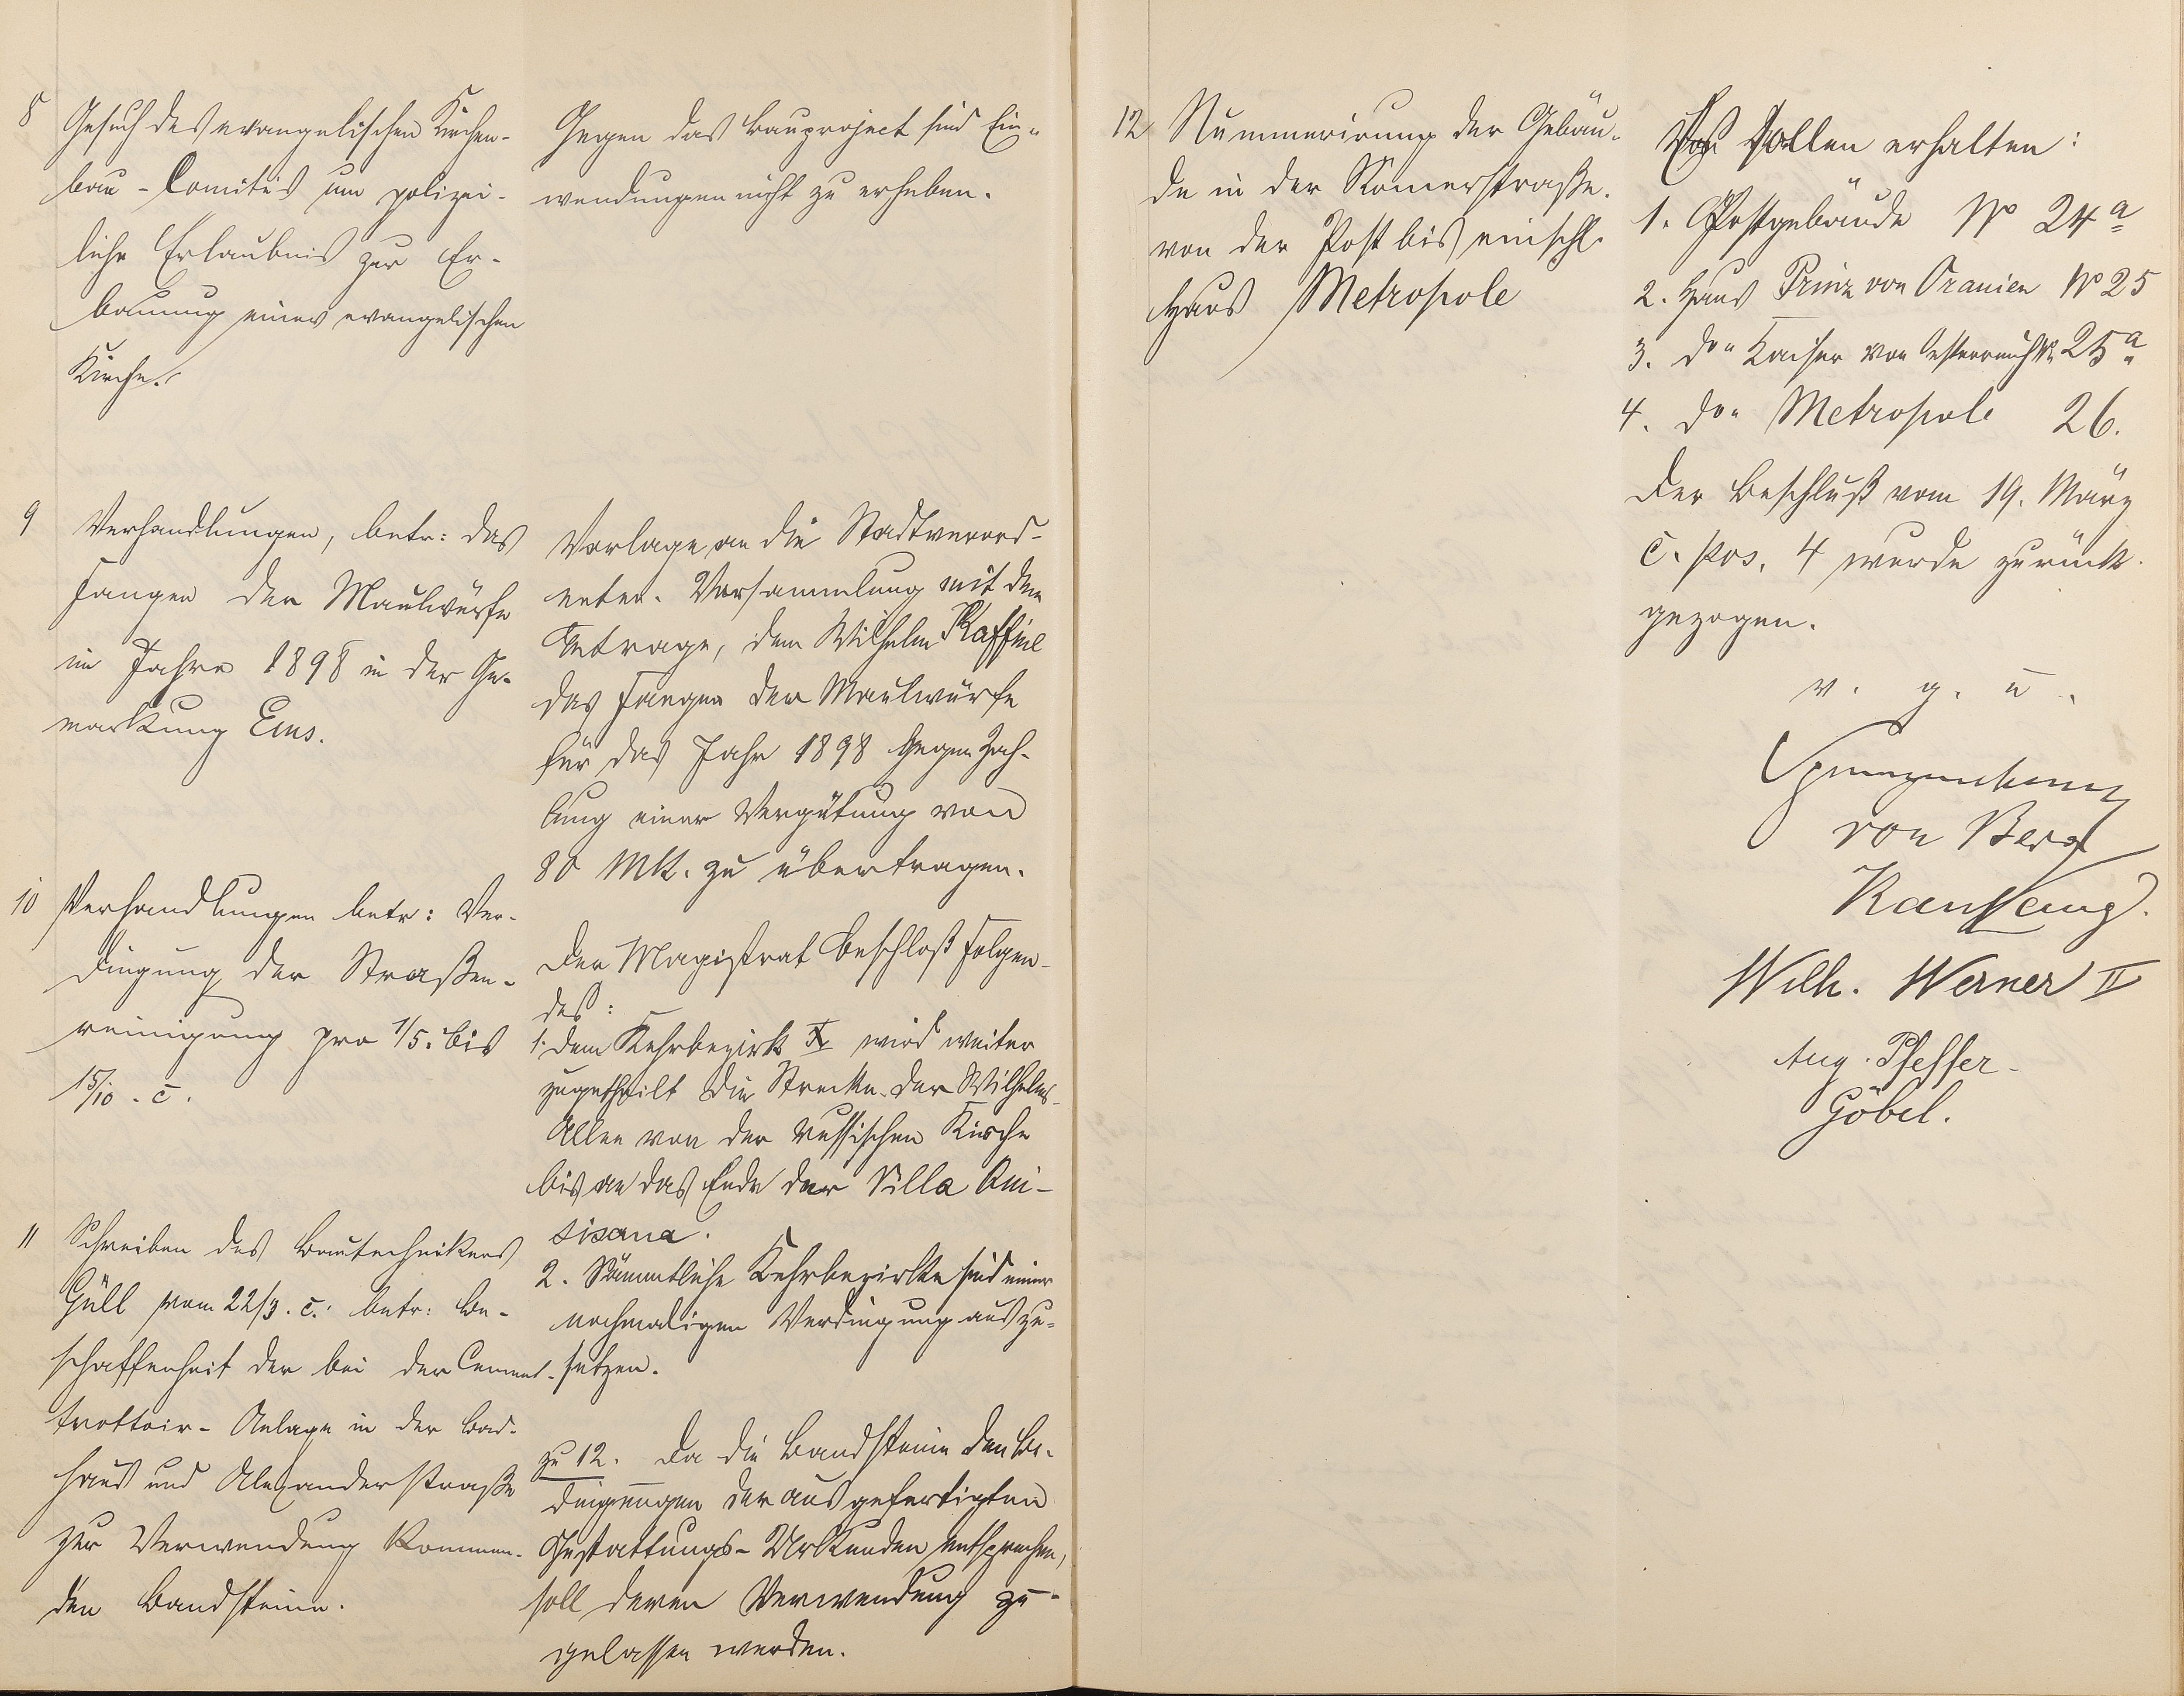 8
Gesuch des evangelischen Kirchen-
bau-Comités um polizei-
liche Erlaubnis zur Er-
bauung einer evangelischen
Kirche.
Gegen das Bauproject sind Ein-
wendungen nicht zu erheben.
9
Verhandlungen, betr: das
Fangen der Maulwürfe
im Jahre 1898 in der Ge-
markung Ems.
Vorlage an die Stadtverord-
neten-Versammlung mit dem
Antrage, dem Wilhelm Kaffine
das Fangen der Maulwürfe
für das Jahr 1898 gegen Zah-
lung einer Vergütung von
80 Mk. zu übertragen.
10
Verhandlungen betr: Ver-
dingung der Straßen-
reinigung pro 1/5. bis
15/10. c̄.
Der Magistrat beschloß Folgen-
des:
1. dem Kehrbezirk X wird weiter
zugetheilt die Strecke der Wilhelms-
Allee von der russischen Kirche
bis an das Ende der Villa Qui-
sisana.
2. Sämmtliche Kehrbezirke sind einer
nochmaligen Verdingung auszu-
setzen.
11
Schreiben des Bautechnikers
Güll vom 22/3. c̄. betr: Be-
schaffenheit der bei der Cement-
trottoir-Anlage in der Bad-
haus und Alexanderstraße
zur Verwendung kommen-
den Bandsteine.
zu 12. Da die Bandsteine den Be-
dingungen der ausgefertigten
Gestattungs-Urkunden entsprechen,
soll deren Verwendung zu-
gelassen werden.
12
Nummerirung der Gebäu-
de in der Römerstraße.
von der Post bis einschl.
Haus Metropole
Es sollen erhalten:
1. Postgebäude No 24a
2. Haus Prinz von Oranien No 25
3. do. Kaiser von Oesterreich No 25a
4. do. Metropole 26.
Der Beschluß vom 19. März
c̄. pos. 4 wurde zurück-
gezogen.
v. g. u.
Spangenberg
von Berg
Wilh. Werner II
Aug. Pfeffer
Göbel.